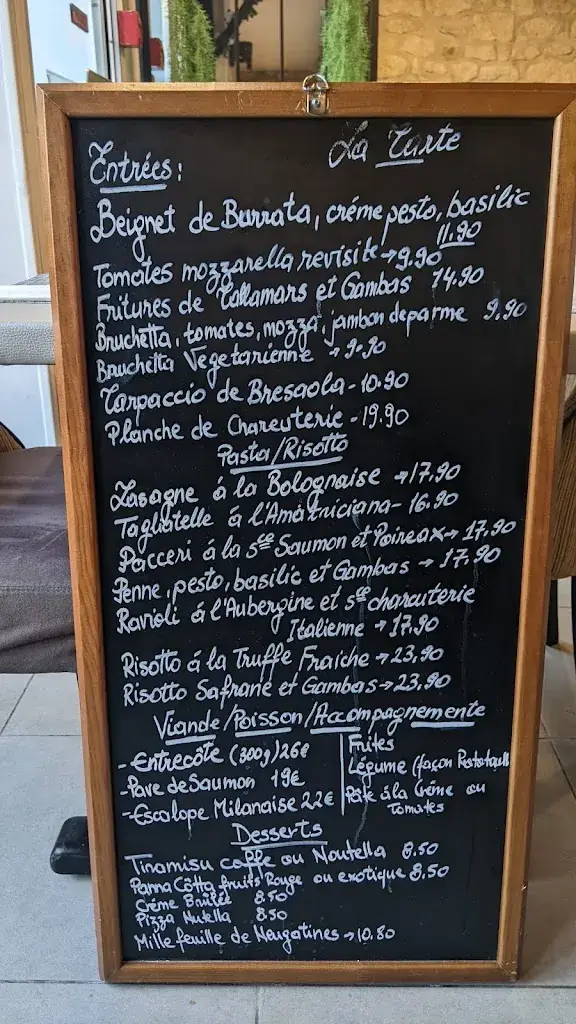 La Carte
Entrées:
Beignet de Burrata, créme pesto, basilic
11.90
Tomates mozzarella revisité → 9.90
Fritures de Callamars et Gambas 14.90
Bruchetta, tomates, mozza, jambon de parme 9.90
Bruchetta Vegetarienne → 9.90
Carpaccio de Bresaola - 10.90
Planche de Chareuterie - 19.90
Pasta/Risotto
Lasagne á la Bolognaise → 17.90
Tagliatelle á l'Amatriciana - 16.90
Pacceri á la sce Saumon et Poireax → 17.90
Penne, pesto, basilic et Gambas → 17.90
Ravioli á l'Aubergine et sce charcuterie
Italienne → 17.90
Risotto á la Truffe Fraiche → 23.90
Risotto Safrané et Gambas → 23.90
Viande/Poisson/Accompagnemente
- Entrecôte (300g) 26€
- Pave de Saumon 19€
- Escalope Milanaise 22€
Frites
Légume (façon
Pâte á la Créme ou
Tomates
Desserts
Tinamisu caffe ou Noutella 8.50
Panna Côtta fruits Rouge ou exotique 8.50
Créme Brulée 8.50
Pizza Nutella 8.50
Mille feuille de Nougatines → 10.80